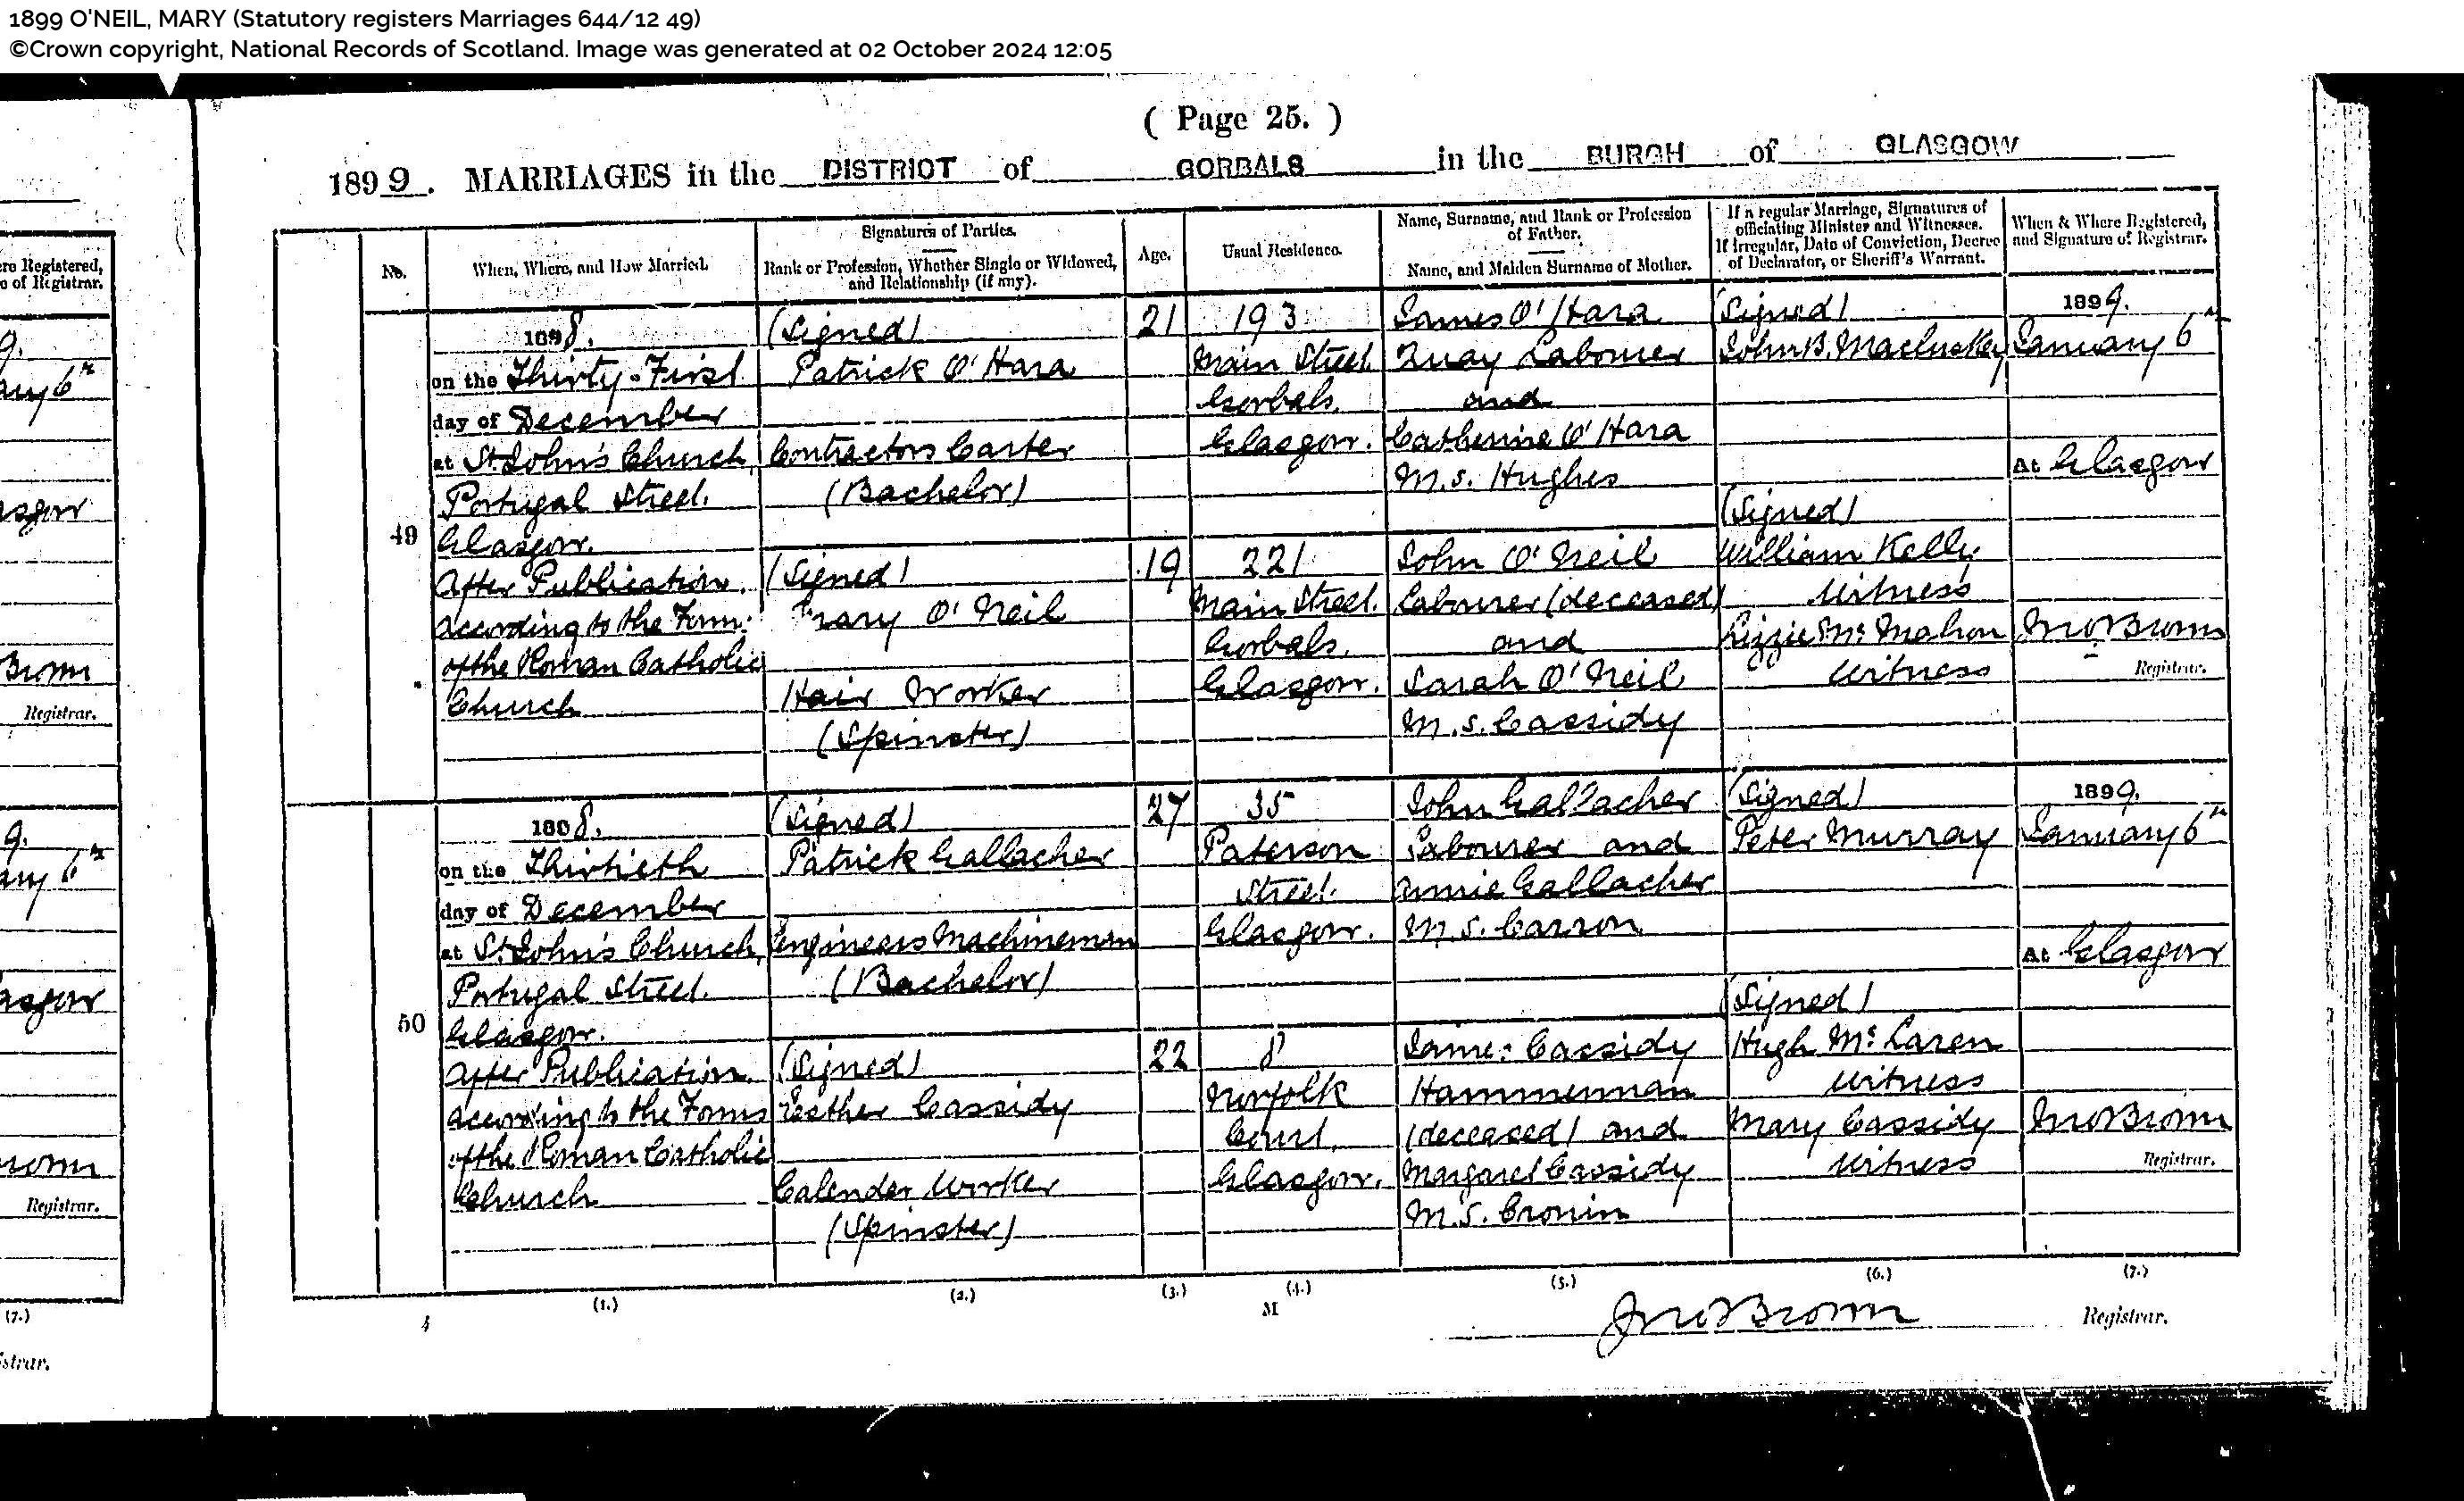 1899 O'NEIL, MARY (Statutory registers Marriages 644/12 49)
©Crown copyright, National Records of Scotland. Image was generated at 02 October 2024 12:05
( Page 25. )
1899. MARRIAGES in the DISTRICT of GORBALS in the BURGH of GLASGOW
No.
When, Where, and How Married.
Signatures of Parties.
Rank or Profession, Whether Single or Widowed,
and Relationship (if any).
Age.
Usual Residence.
Name, Surname, and Rank or Profession
of Father.
Name, and Maiden Surname of Mother.
If a regular Marriage, Signatures of
officiating Minister and Witnesses.
If irregular, Date of Conviction, Decree
of Declarator, or Sheriff's Warrant.
When & Where Registered,
and Signature of Registrar.
49
1898.
on the Thirty-First
day of December
at St. John's Church,
Portugal Street.
Glasgow.
After Publication.
according to the Forms
of the Roman Catholic
Church
(Signed)
Patrick O'Hara
Contractors Carter
(Bachelor)
(Signed)
Mary O'Neil
Hair Worker
(Spinster)
21
19
193
Main Street.
Gorbals.
Glasgow.
221
Main Street.
Gorbals.
Glasgow.
James O'Hara
Quay Labourer
and
Catherine O'Hara
M.S. Hughes
John O'Neil
Labourer (deceased)
and
Sarah O'Neil
M.S. Cassidy
(Signed)
John B. Macluskey
(Signed)
William Kelly.
Witness
Lizzie McMahon
Witness
1899.
January 6th
At Glasgow
Jno Brown
Registrar.
50
1898.
on the Thirtieth
day of December
at St. John's Church,
Portugal Street.
Glasgow.
After Publication.
according to the Forms
of the Roman Catholic
Church
(Signed)
Patrick Gallacher
Engineers Machineman
(Bachelor)
(Signed)
Esther Cassidy
Calender Worker
(Spinster)
27
22
35
Paterson
Street.
Glasgow.
8
Norfolk
Court.
Glasgow.
John Gallacher
Labourer and
Annie Gallacher
M.S. Carron
James Cassidy
Hammerman
(deceased) and
Margaret Cassidy
M.S. Cronin
(Signed)
Peter Murray
(Signed)
Hugh McLaren
Witness
Mary Cassidy
Witness
1899.
January 6th
At Glasgow
Jno Brown
Registrar.
(1.) (2.) (3.) (4.) (5.) (6.) (7.)
4
M
Jno Brown Registrar.